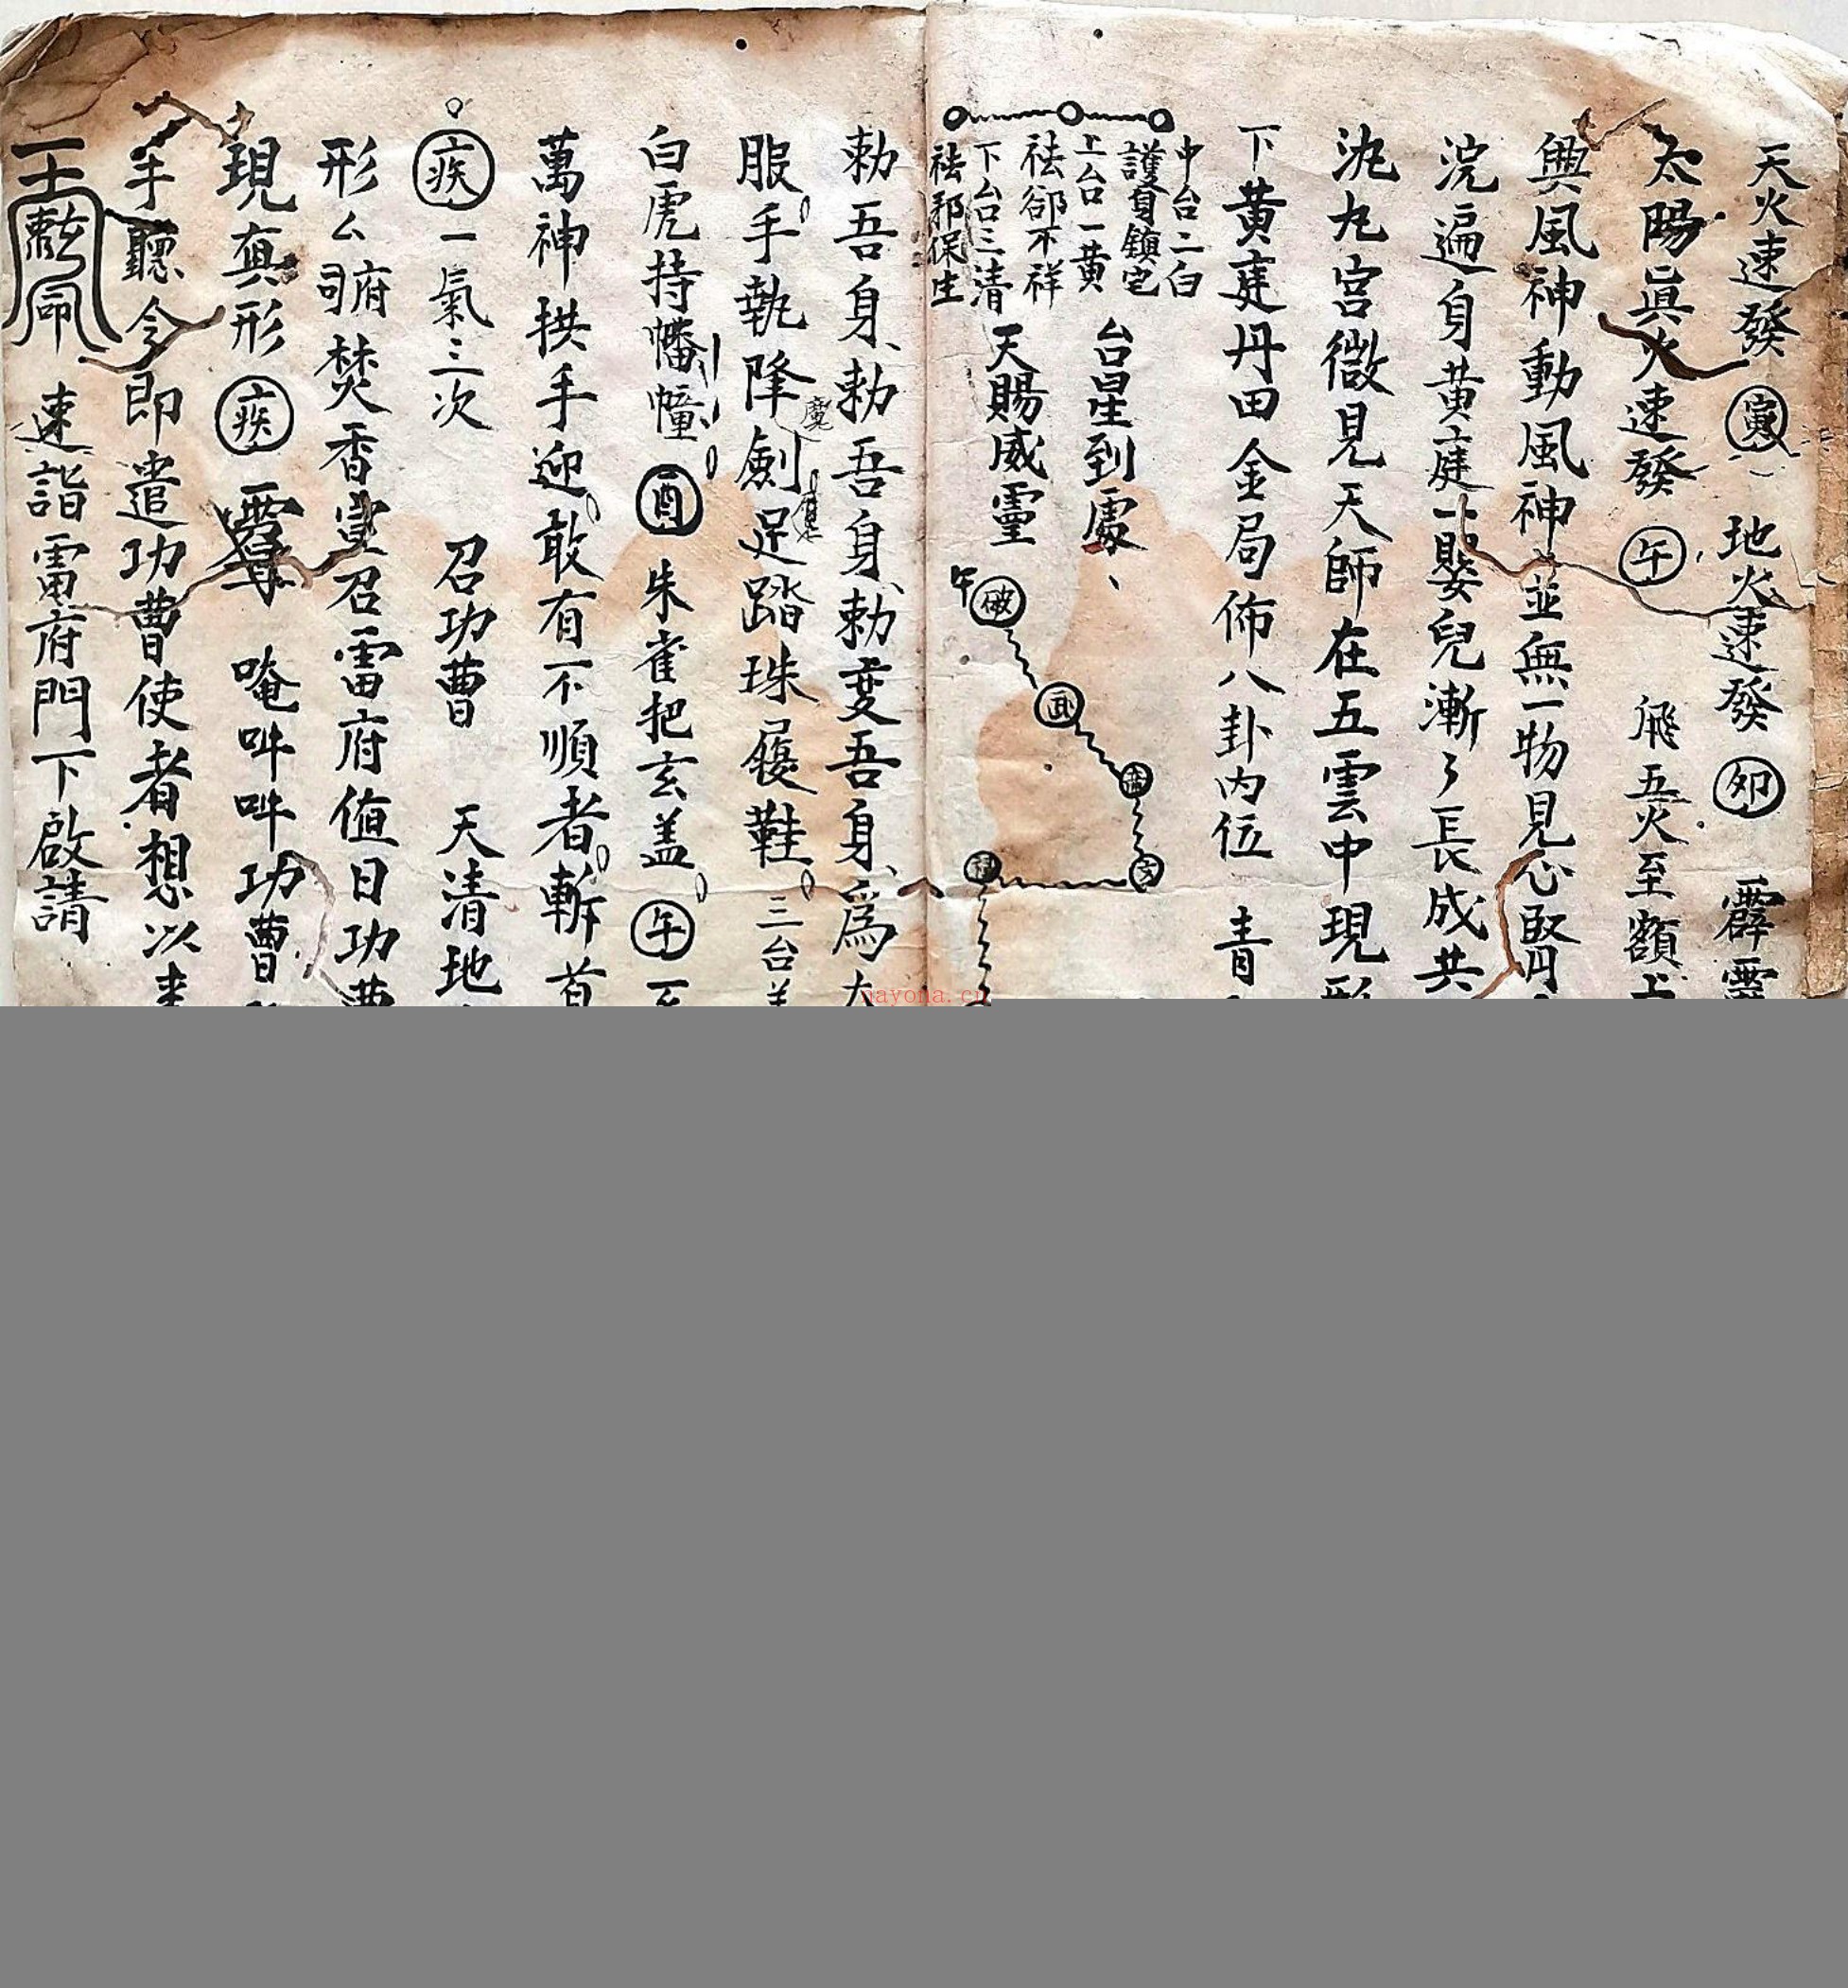 天火速發 寅 地火速發 卯 霹靂
太陽眞火速發 午 飛五火至額上
興風神動風神並無一物見心腎
浣遍身黄庭一嬰兒漸々長成共
九宮微見天師在五雲中現形
下黄庭丹田金局佈八卦内位 青
中台二白
護身鎮宅
上台一黄
祛卻不祥
下台三清
祛邪保生
台星到處、
天賜威靈
午 破
勅吾身、勅吾身、勅変吾身、爲
服手執降魔劍足踏珠履鞋 三台
白虎持幡幢 酉 朱雀把玄盖 午 至
萬神拱手迎敢有不順者斬首
疾 一氣三次 召功曹 天清地
形 焚香宣召雷府值日功曹
現真形 疾 唵吽吽功曹
手聽令即遣功曹使者想以
勅令 速詣雷府門下啟請
nayona.cn